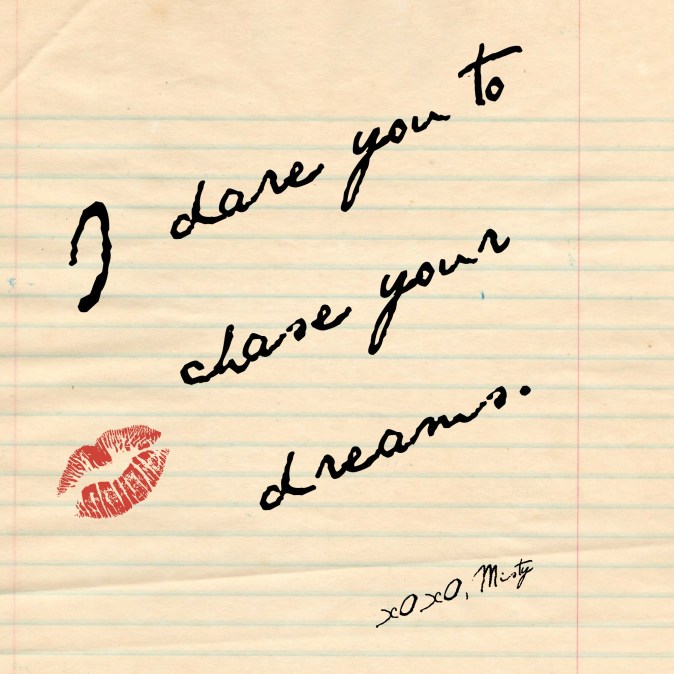 I dare you to
chase your
dreams.
xoxo, Misty